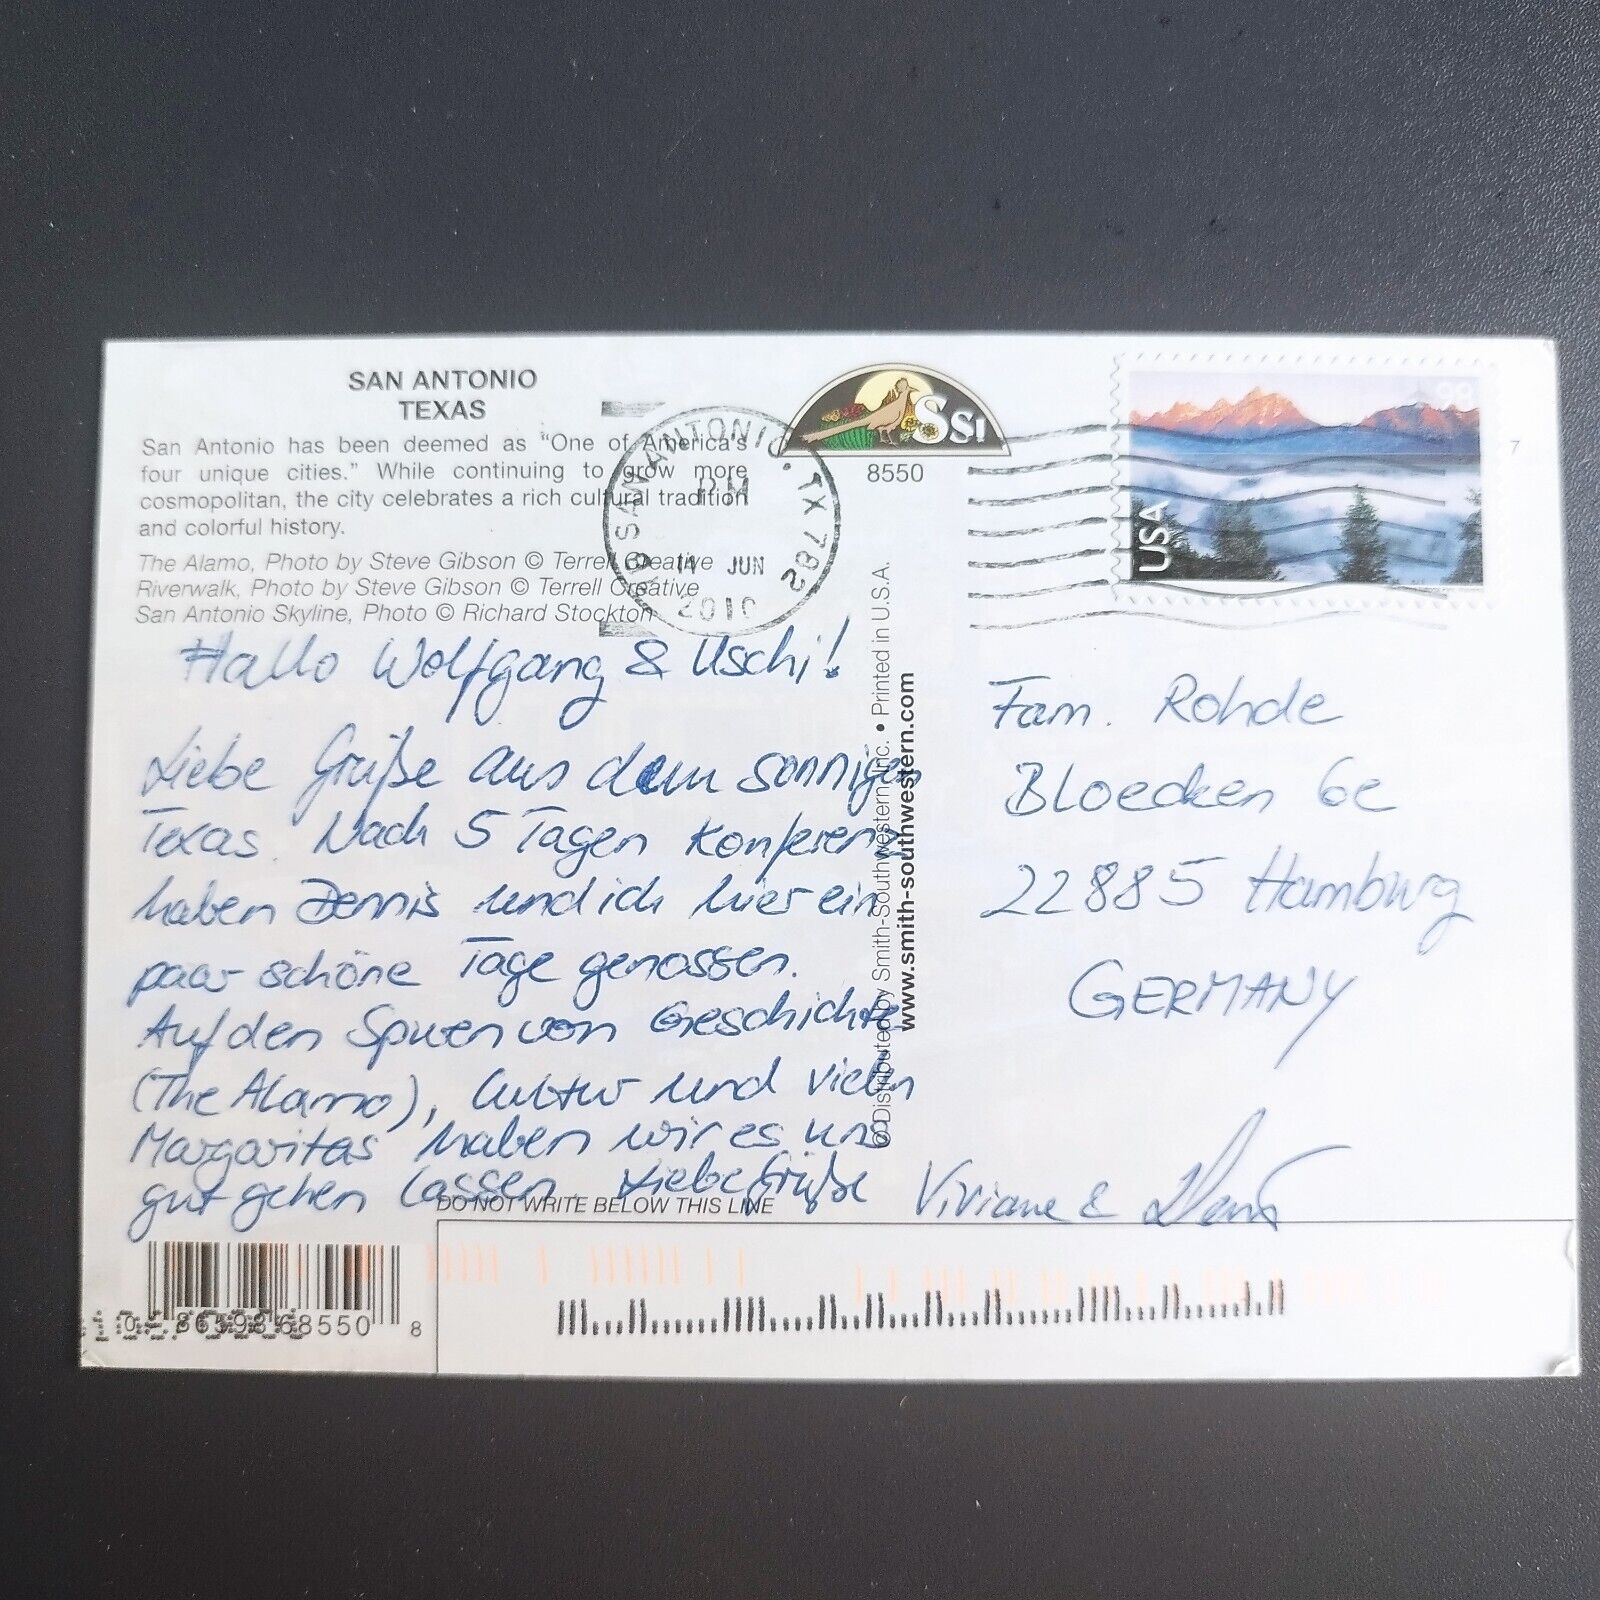 SAN ANTONIO
TEXAS
San Antonio has been deemed as "One of America's
four unique cities." While continuing to grow more
cosmopolitan, the city celebrates a rich cultural tradition
and colorful history.
The Alamo, Photo by Steve Gibson © Terrell Creative
Riverwalk, Photo by Steve Gibson © Terrell Creative
San Antonio Skyline, Photo © Richard Stockton
SAN ANTONIO. TX 782
PM
11 JUN
SSI
8550
USA
98
7
Hallo Wolfgang & Uschi!
Liebe Grüße aus dem sonnigen
Texas. Nach 5 Tagen Konferenz
haben Dennis und ich hier ein
paar schöne Tage genossen.
Auf den Spuren von Geschichte
(The Alamo), Cultur und vielen
Margaritas haben wir es uns
gut gehen lassen. Liebe Grüße Viviane &
Distributed by Smith-Southwestern Inc. • Printed in U.S.A.
www.smith-southwestern.com
Fam. Rohde
Bloecken 6c
22885 Hamburg
GERMANY
DO NOT WRITE BELOW THIS LINE
0 86398 68550 8